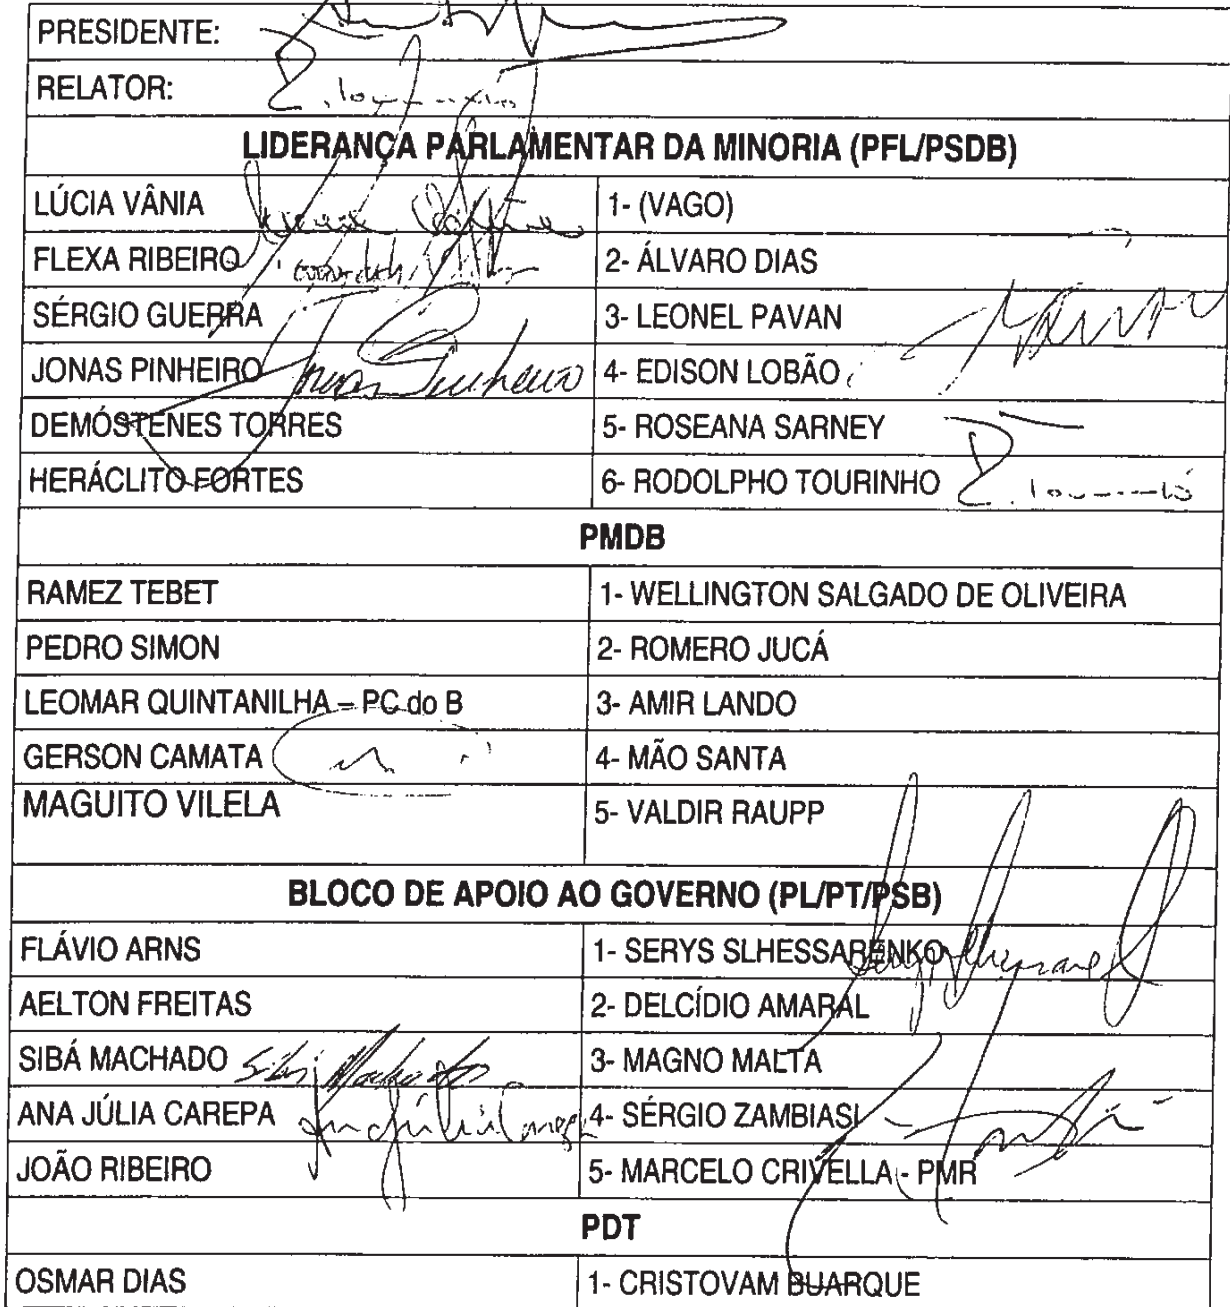 PRESIDENTE:
RELATOR:
LIDERANÇA PARLAMENTAR DA MINORIA (PFL/PSDB)
LÚCIA VÂNIA 1- (VAGO)
FLEXA RIBEIRO 2- ÁLVARO DIAS
SÉRGIO GUERRA 3- LEONEL PAVAN
JONAS PINHEIRO Jonas Pinheiro 4- EDISON LOBÃO
DEMÓSTENES TORRES 5- ROSEANA SARNEY
HERÁCLITO FORTES 6- RODOLPHO TOURINHO
PMDB
RAMEZ TEBET 1- WELLINGTON SALGADO DE OLIVEIRA
PEDRO SIMON 2- ROMERO JUCÁ
LEOMAR QUINTANILHA – PC do B 3- AMIR LANDO
GERSON CAMATA 4- MÃO SANTA
MAGUITO VILELA 5- VALDIR RAUPP
BLOCO DE APOIO AO GOVERNO (PL/PT/PSB)
FLÁVIO ARNS 1- SERYS SLHESSARENKO
AELTON FREITAS 2- DELCÍDIO AMARAL
SIBÁ MACHADO Sibá Machado 3- MAGNO MALTA
ANA JÚLIA CAREPA Ana Júlia Carepa 4- SÉRGIO ZAMBIASI
JOÃO RIBEIRO 5- MARCELO CRIVELLA - PMR
PDT
OSMAR DIAS 1- CRISTOVAM BUARQUE